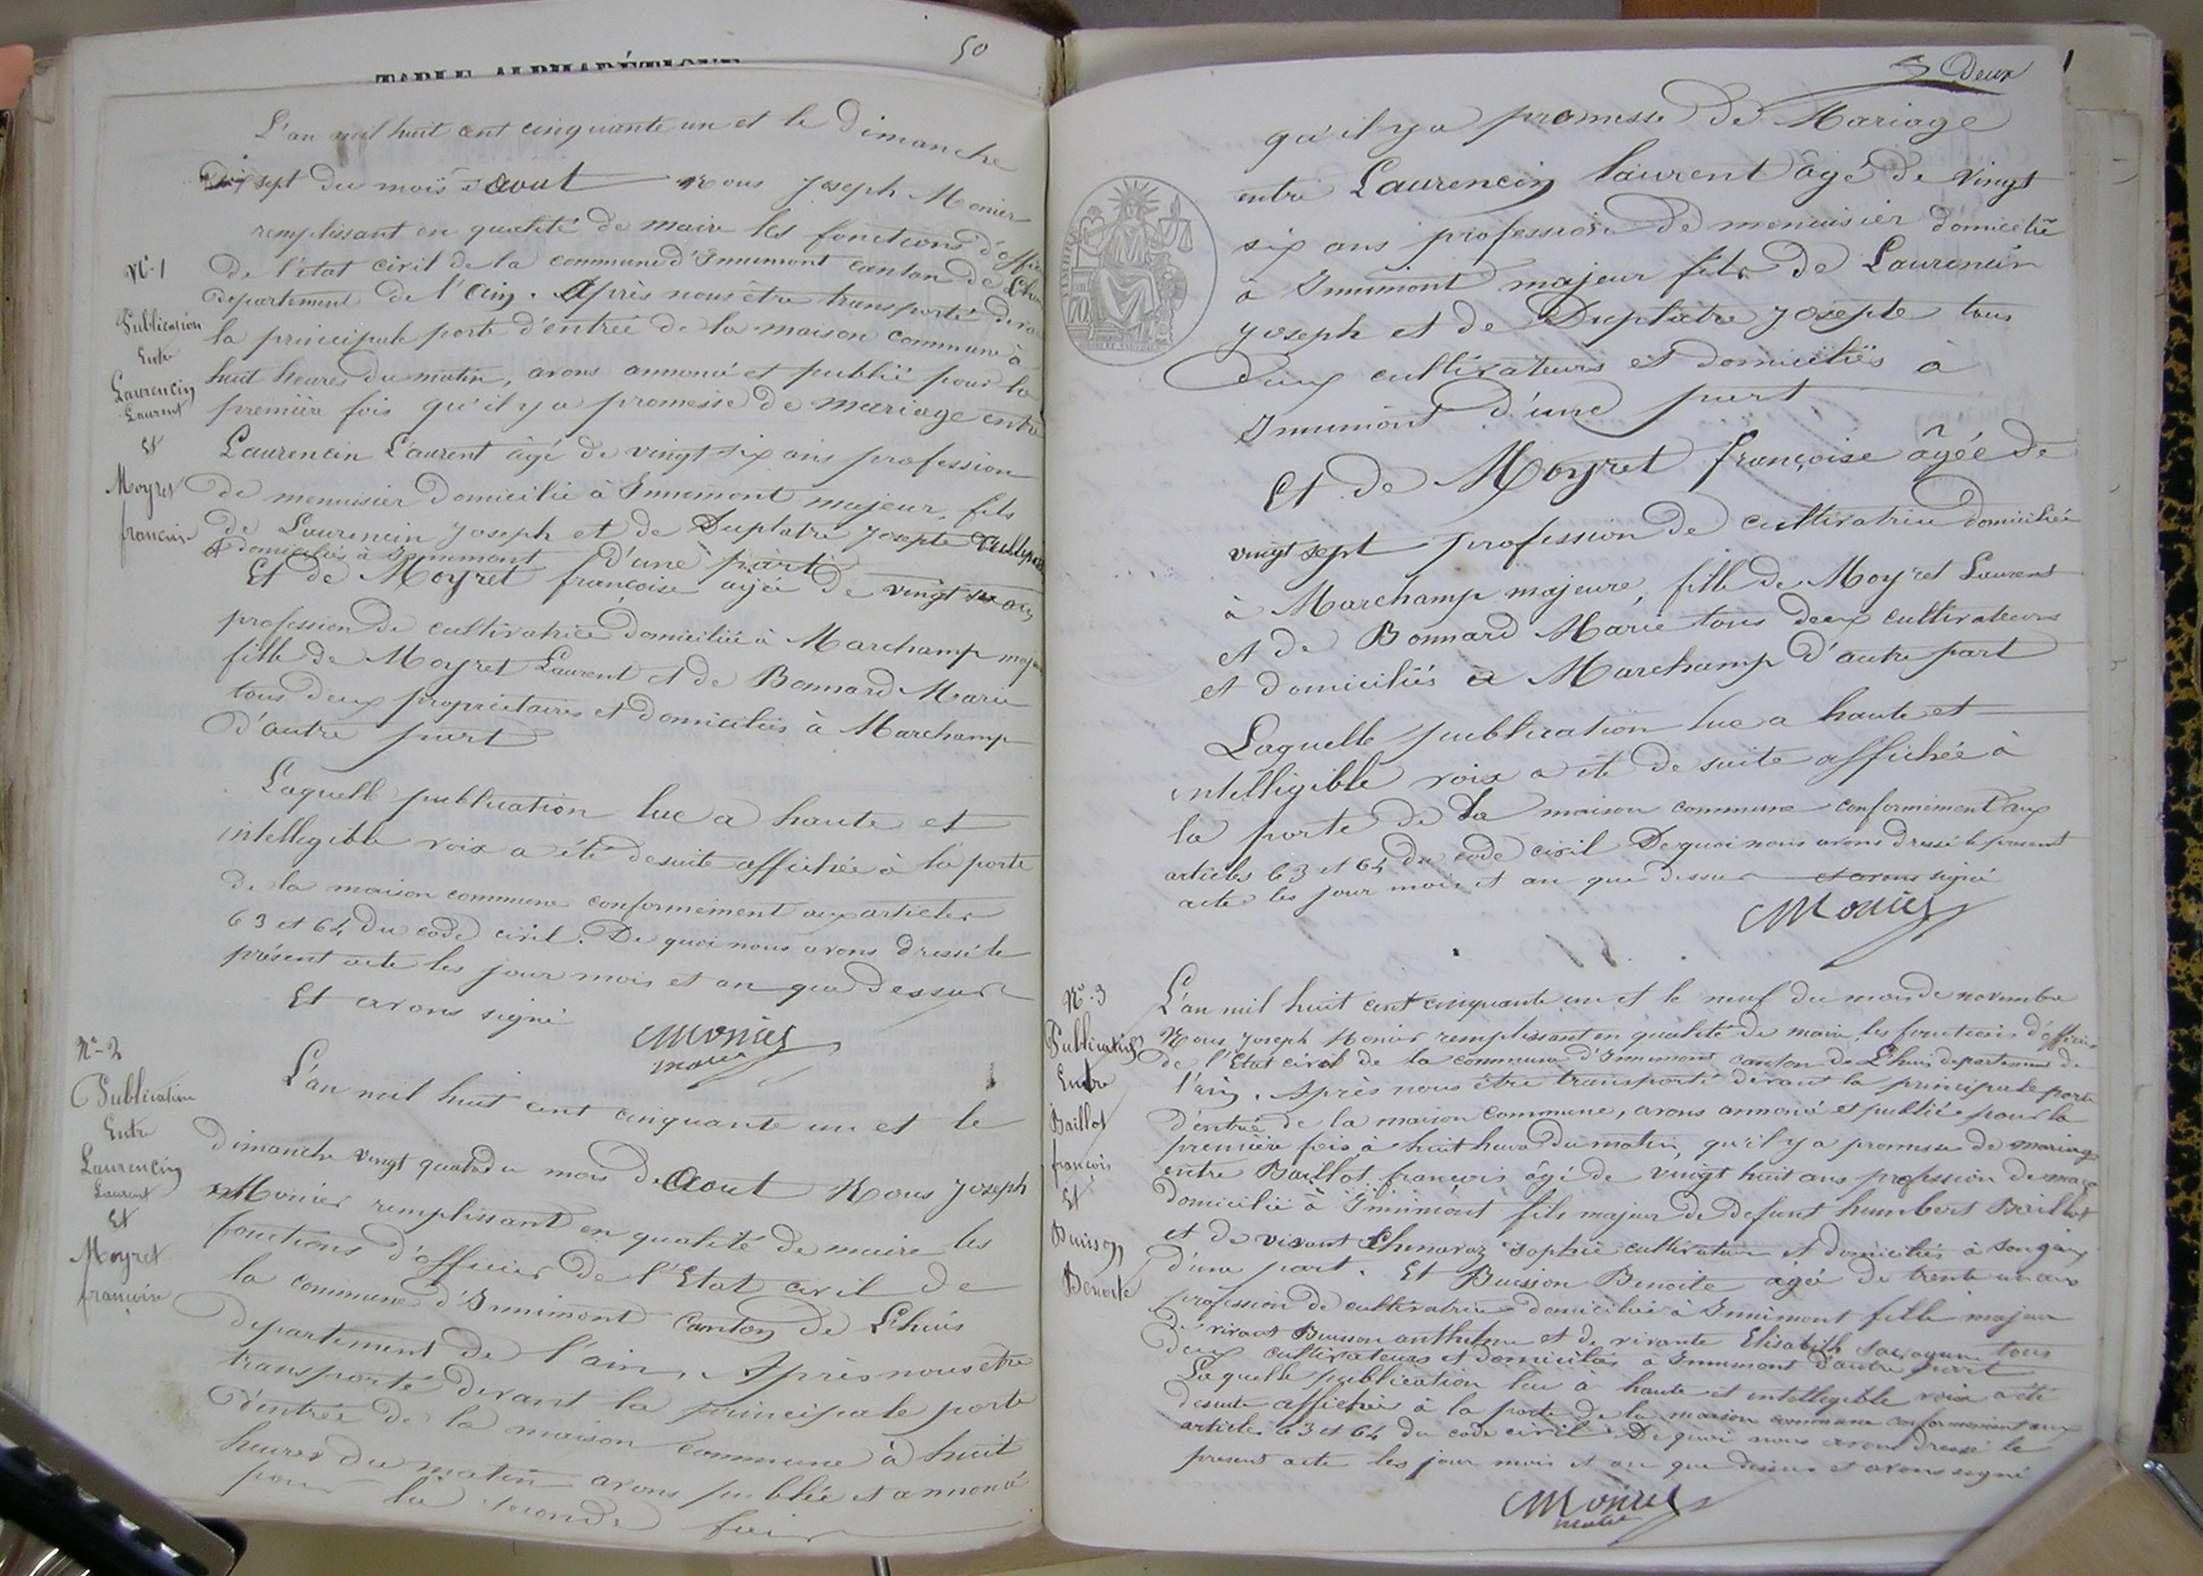 50
TABLE ALPHABÉTIQUE
L'an mil huit cent cinquante un et le Dimanche
dix sept du mois d'aout Nous Joseph Monier
remplissant en qualité de maire les fonctions d'offici
de l'état civil de la commune d'Innimont canton de Lhu
département de l'ain. Après nous être transporté deva
la principale porte d'entrée de la maison commune à
huit heures du matin, avons annoncé et publié pour la
première fois qu'il y a promesse de mariage entre
Laurencin Laurent âgé de vingt six ans profession
de menuisier domicilié à Innimont majeur, fils
de Laurencin Joseph et de Duplatre Josepte
domiciliés à Innimont d'une part
Et de Moyret françoise agée de vingt
profession de cultivatrice domiciliée à Marchamp maj
fille de Moyret Laurent et de Bonnard Marie
tous deux propriétaires et domiciliés à Marchamp
d'autre part
Laquelle publication lue a haute et
intellegible voix a été desuite affichée à la porte
de la maison commune conformément aux articles
63 et 64 du code civil. De quoi nous avons dressé le
présent acte les jour mois et an que dessus
Et avons signé
Monier
maire
N° 1
Publication
Entre
Laurencin
Laurent
et
Moyret
françoise
N° 2
Publication
Entre
Laurencin
Laurent
Et
Moyret
françoise
L'an mil huit cent cinquante un et le
dimanche vingt quatre du mois de aout Nous Joseph
Monier remplissant en qualité de maire les
fonctions d'officier de l'Etat civil de
la commune d'Innimont canton de Lhuis
departement de l'ain, Après nous être
transporté devant la principale porte
d'entrée de la maison commune à huit
heures du matin avons publié et annoncé
pour la seconde fois
Deux
qu'il y a promesse de Mariage
entre Laurencin laurent âgé de vingt
six ans profession de menuisier domicilié
à Innimont majeur fils de Laurencin
Joseph et de Duplatre Josepte tous
deux cultivateurs et domiciliés à
Innimont d'une part
Et de Moyret françoise âgée de
vingt sept profession de cultivatrice domiciliée
à Marchamp majeure, fille de Moyret Laurent
et de Bonnard Marie tous deux cultivateurs
et domiciliés à Marchamp d'autre part
Laquelle publication lue a haute et
intelligible voix a été de suite affichée à
la porte de la maison commune conformément aux
articles 63 et 64 du code civil De quoi nous avons dressé le present
acte les jour mois et an que dessus et avons signé
Monier
N° 3
Publication
Entre
Baillot
françois
Et
Buisson
Benoite
L'an mil huit cent cinquante un et le neuf du mois de novembre
Nous Joseph Monier remplissant en qualité de maire les fonctions d'officier
de l'Etat civil de la commune d'Innimont canton de Lhuis departement de
l'ain. Après nous être transporté devant la principale porte
d'entrée de la maison commune, avons annoncé et publié pour la
première fois à huit heures du matin, qu'il y a promesse de mariage
entre Baillot françois âgé de vingt huit ans profession de
domicilié à Innimont fils majeur de defunt humbert Baillot
et de vivant sophie cultivateur et domiciliés à
d'une part. Et Buisson Benoite âgée de trente un ans
profession de cultivatrice domiciliée à Innimont fille majeur
de vivant Buisson anthelme et de vivante Elisabeth tous
deux cultivateurs et domiciliés à Innimont d'autre part
Laquelle publication lue à haute et intellegible voix a été
desuite affichée à la porte de la maison commune conformément aux
articles 63 et 64 du code civil. De quoi nous avons dressé le
present acte les jour mois et an que dessus et avons signé
Monier
maire